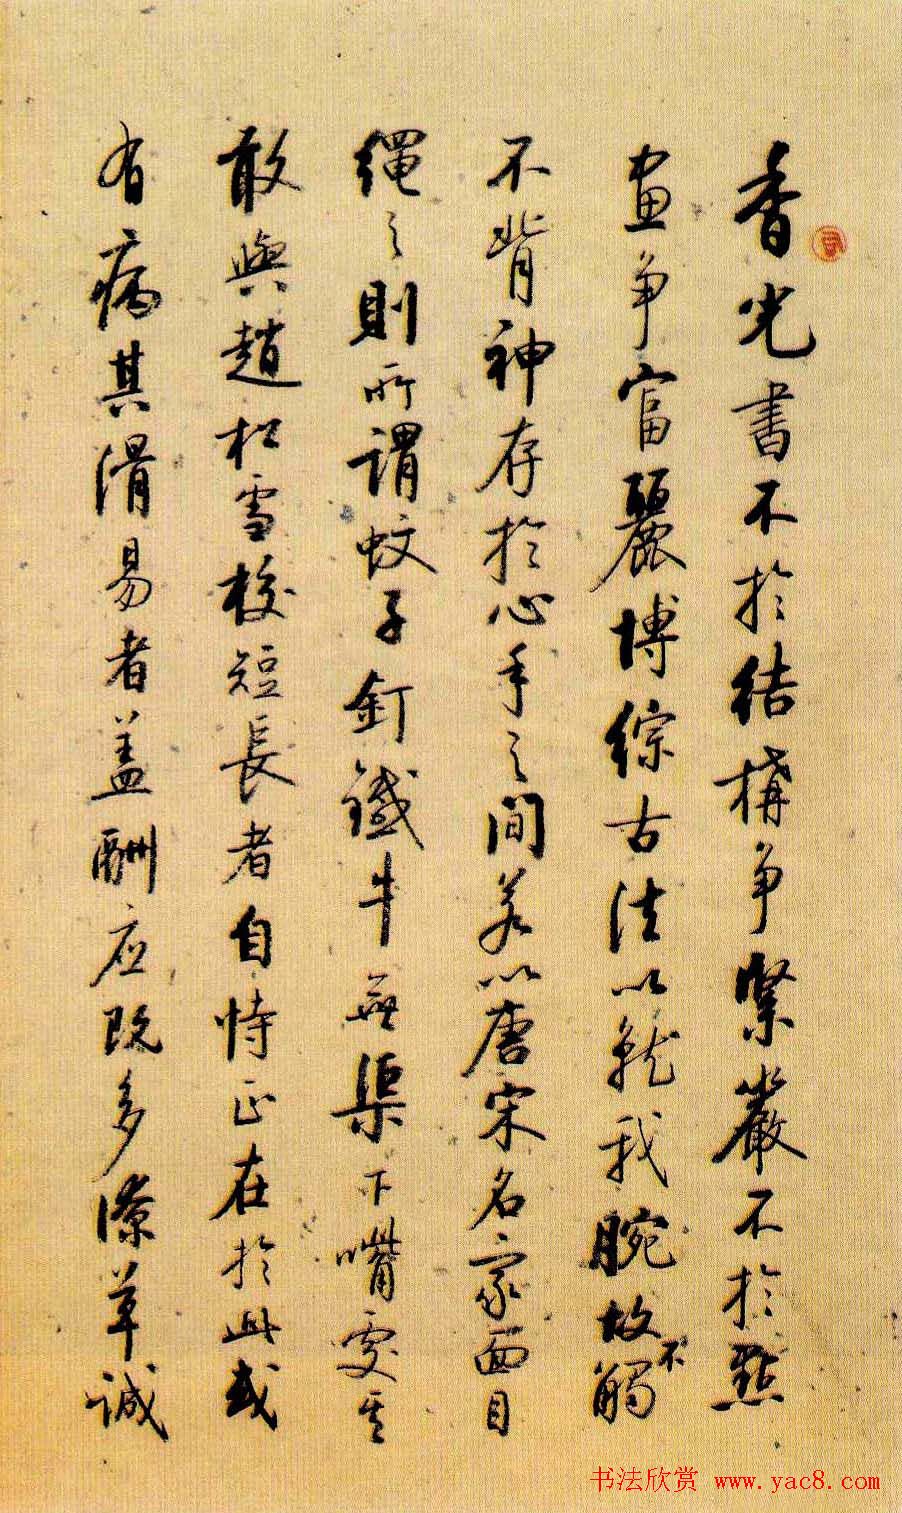 香光書不於結構爭緊嚴不於點
畫爭富麗博綜古法以就我腕故不觸
不背神存於心手之間若以唐宋名家面目
繩之則所謂蚊子釘鐵牛無渠下嘴處其
敢與趙松雪校短長者自恃正在於此或
有病其滑易者蓋酬应既多潦草誠
书法欣赏 www.yac8.com